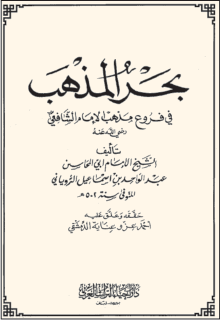 بحر المذهب
في فروع مذهب الإمام الشافعي
رضي الله عنه
تأليف
الشيخ الإمام أبي المحاسن
عبد الواحد بن إسماعيل الروياني
المتوفى سنة ٥٠٢ هـ
حققه وعلق عليه
أحمد عزو عناية الدمشقي
دار إحياء التراث العربي